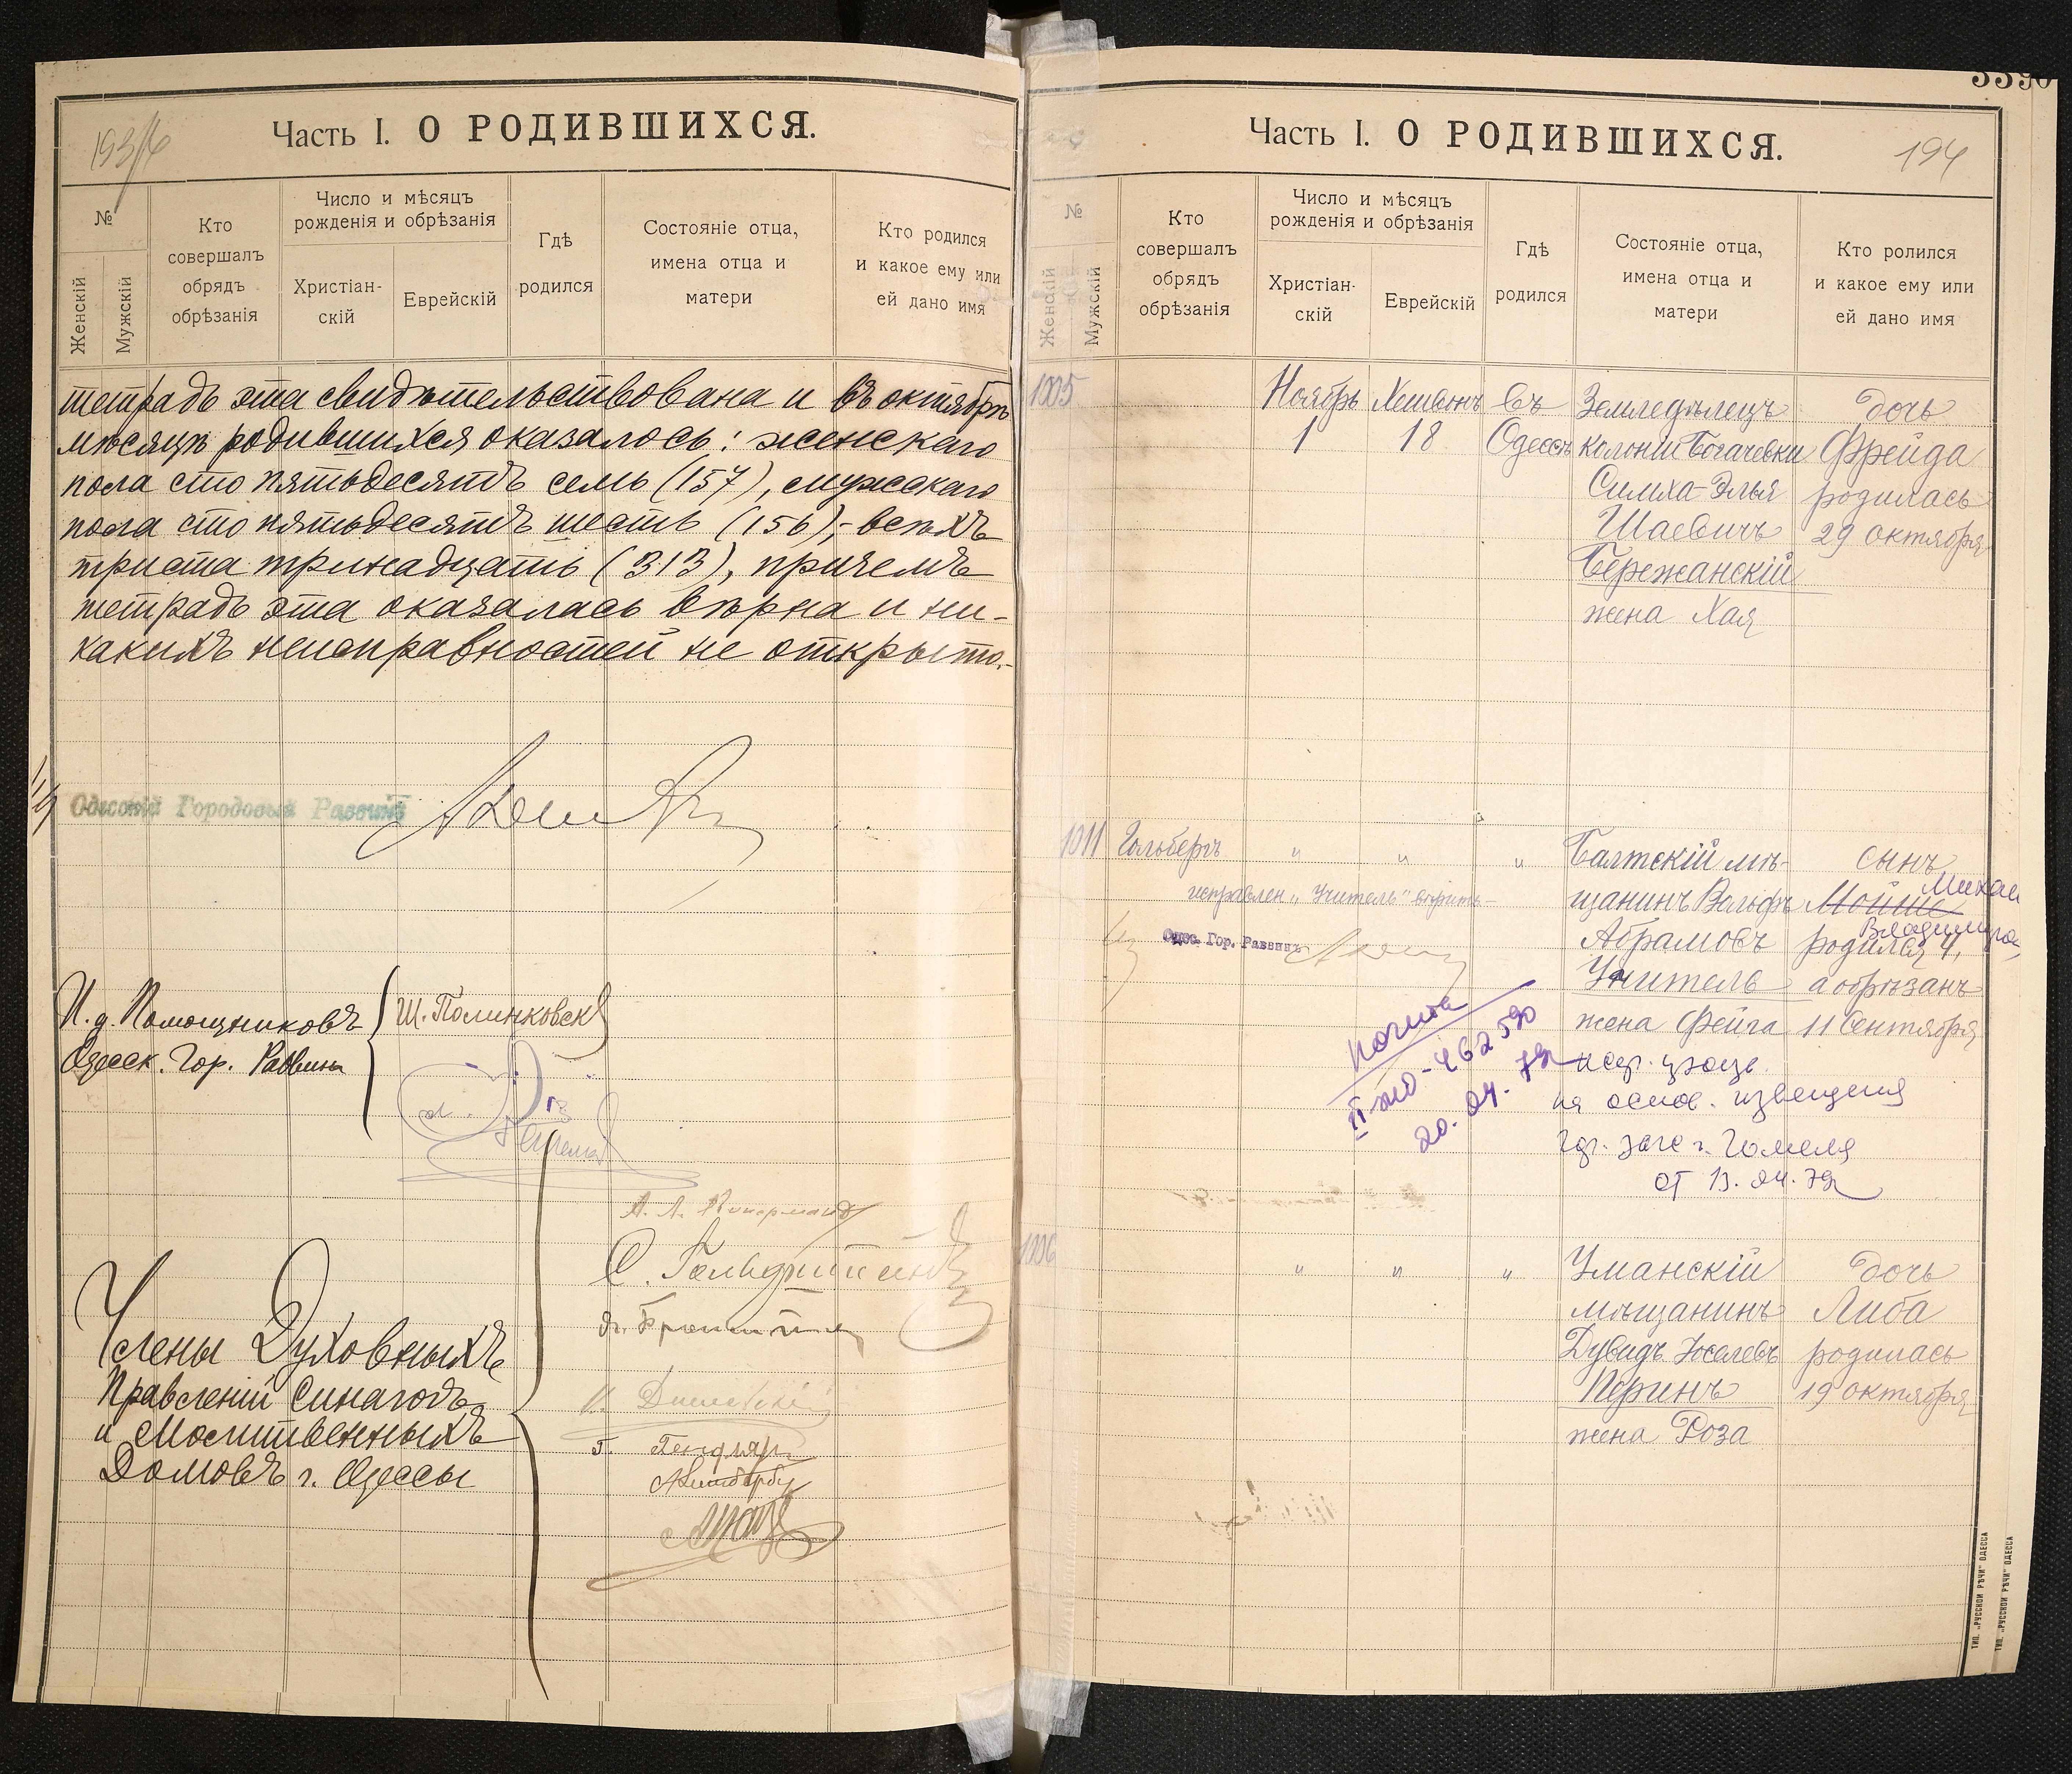 193/4
Часть I. О РОДИВШИХСЯ.
№
Женскій
Мужскій
Кто
совершалъ
обрядъ
обрѣзанія
Число и мѣсяцъ
рожденія и обрѣзанія
Христіан-
скій
Еврейскій
Гдѣ
родился
Состояніе отца,
имена отца и
матери
Кто родился
и какое ему или
ей дано имя
тетрадь эта свидѣтельствована и въ октябрѣ
мѣсяцѣ родившихся оказалось: женскаго
пола сто пятьдесятъ семь (157), мужскаго
пола сто пятьдесятъ шесть (156), - всѣхъ
триста тринадцать (313), причемъ
тетрадь эта оказалась вѣрна и ни-
какихъ неисправностей не открыто.-
Одесскій Городовый Раввинъ
И. д. Помощниковъ
Одесск. Гор. Раввина
Ш. Полинковскій
Члены Духовныхъ
Правленій Синагогъ
и Молитвенныхъ
Домовъ г. Одессы
3390
Часть I. О РОДИВШИХСЯ.
194
№
Женскій
Мужскій
Кто
совершалъ
обрядъ
обрѣзанія
Число и мѣсяцъ
рожденія и обрѣзанія
Христіан-
скій
Еврейскій
Гдѣ
родился
Состояніе отца,
имена отца и
матери
Кто ролился
и какое ему или
ей дано имя
1005 Ноябрь Хешвонъ въ Земледѣлецъ дочь
1 18 Одессѣ колоніи Богачевки Фрейда
Симха-Элья родилась
Шаевичъ 29 октября
Бережанскій
жена Хая
1011 Гольбергъ " " " Балтскій мѣ- сынъ
исправлен. „Учитель" вѣрить- щанинъ Вольфъ Мойше Михаил
Одес. Гор. Раввинъ Абрамовъ родился 4, Владимиро-
Учитель а обрѣзанъ
жена Фейга 11 Сентября
II-жо-462590
20.04.79
на основ. извещения
гор. загс г. Гомеля
от 13.04.79
1006 " " " Уманскій дочь
мѣщанинъ Либа
Дувидъ Іоселевъ родилась
Перинъ 19 октября
жена Роза
ТИП. „РУССКОЙ РѢЧИ" ОДЕССА
ТИП. „РУССКОЙ РѢЧИ" ОДЕССА